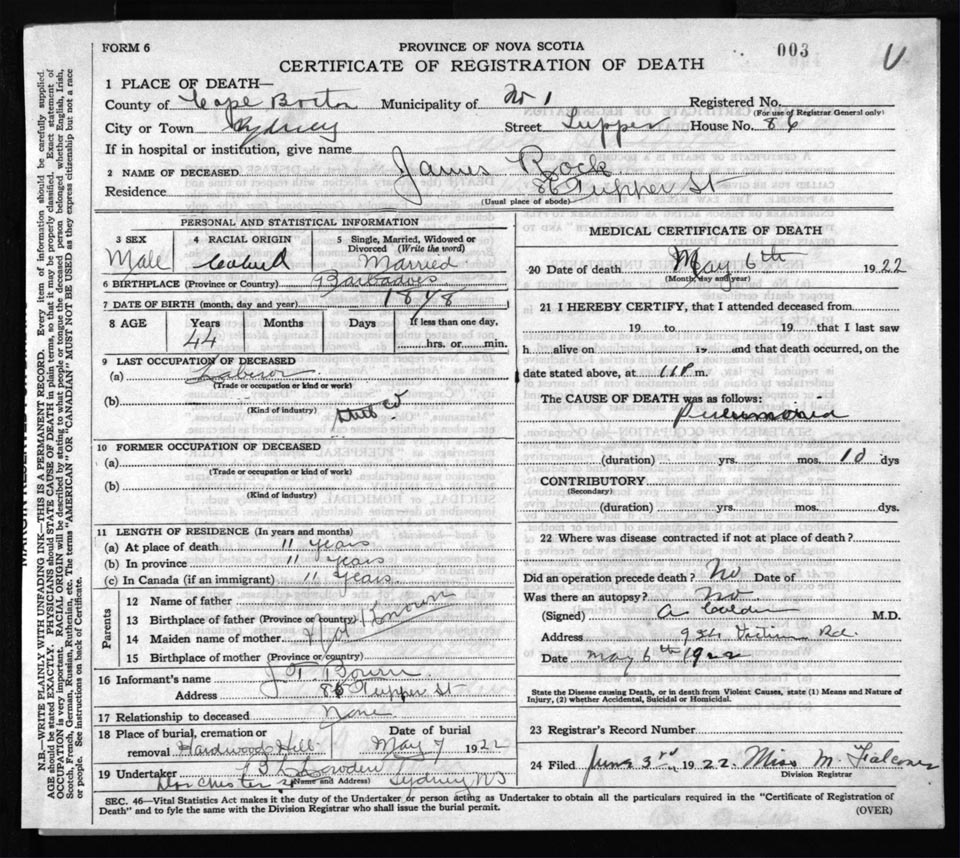 FORM 6
PROVINCE OF NOVA SCOTIA
003
CERTIFICATE OF REGISTRATION OF DEATH
1 PLACE OF DEATH—
County of Cape Breton Municipality of No 1 Registered No.
(For use of Registrar General only)
City or Town Sydney Street Tupper House No. 86
If in hospital or institution, give name
2 NAME OF DECEASED James Rock
Residence 86 Tupper St
(Usual place of abode)
PERSONAL AND STATISTICAL INFORMATION
3 SEX 4 RACIAL ORIGIN 5 Single, Married, Widowed or Divorced (Write the word)
Male Colored Married
6 BIRTHPLACE (Province or Country) Barbados
7 DATE OF BIRTH (month, day and year) 1878
8 AGE Years Months Days If less than one day,
44 hrs. or min.
9 LAST OCCUPATION OF DECEASED
(a) Laborer
(Trade or occupation or kind of work)
(b)
(Kind of industry)
10 FORMER OCCUPATION OF DECEASED
(a)
(Trade or occupation or kind of work)
(b)
(Kind of industry)
11 LENGTH OF RESIDENCE (In years and months)
(a) At place of death 11 years
(b) In province 11 years
(c) In Canada (if an immigrant) 11 Years
Parents
12 Name of father
13 Birthplace of father (Province or country)
Not Known
14 Maiden name of mother
15 Birthplace of mother (Province or country)
16 Informant's name J T Bourn
Address 86 Tupper St
17 Relationship to deceased None
18 Place of burial, cremation or removal Hardwood Hill
Date of burial May 7 1922
19 Undertaker
(Name and Address)
Dorchester St Sydney NS
MEDICAL CERTIFICATE OF DEATH
20 Date of death May 6th 1922
(Month, day and year)
21 I HEREBY CERTIFY, that I attended deceased from
19 to 19 that I last saw
h alive on 19 and that death occurred, on the
date stated above, at 11P m.
The CAUSE OF DEATH was as follows:
Pneumonia
(duration) yrs. mos. 10 dys
CONTRIBUTORY
(Secondary)
(duration) yrs. mos. dys.
22 Where was disease contracted if not at place of death?
Did an operation precede death? No Date of
Was there an autopsy? No
(Signed) A Calder M.D.
Address Rd.
Date May 6th 1922
State the Disease causing Death, or in death from Violent Causes, state (1) Means and Nature of
Injury, (2) whether Accidental, Suicidal or Homicidal.
23 Registrar's Record Number
24 Filed June 3rd 1922 Miss M. Falconer
Division Registrar
SEC. 46—Vital Statistics Act makes it the duty of the Undertaker or person acting as Undertaker to obtain all the particulars required in the "Certificate of Registration of
Death" and to fyle the same with the Division Registrar who shall issue the burial permit.
(OVER)
N.B.—WRITE PLAINLY WITH UNFADING INK—THIS IS A PERMANENT RECORD. Every item of information should be carefully supplied.
AGE should be stated EXACTLY. PHYSICIANS should STATE CAUSE OF DEATH in plain terms, so that it may be properly classified. Exact statement of
OCCUPATION is very important. RACIAL ORIGIN will be described by stating to what people or tongue the deceased person belonged whether English, Irish,
Scotch, French, German, Russian, Ruthenian, etc. The terms "AMERICAN" or "CANADIAN" MUST NOT BE USED as they express citizenship but not a race
or people. See instructions on back of Certificate.